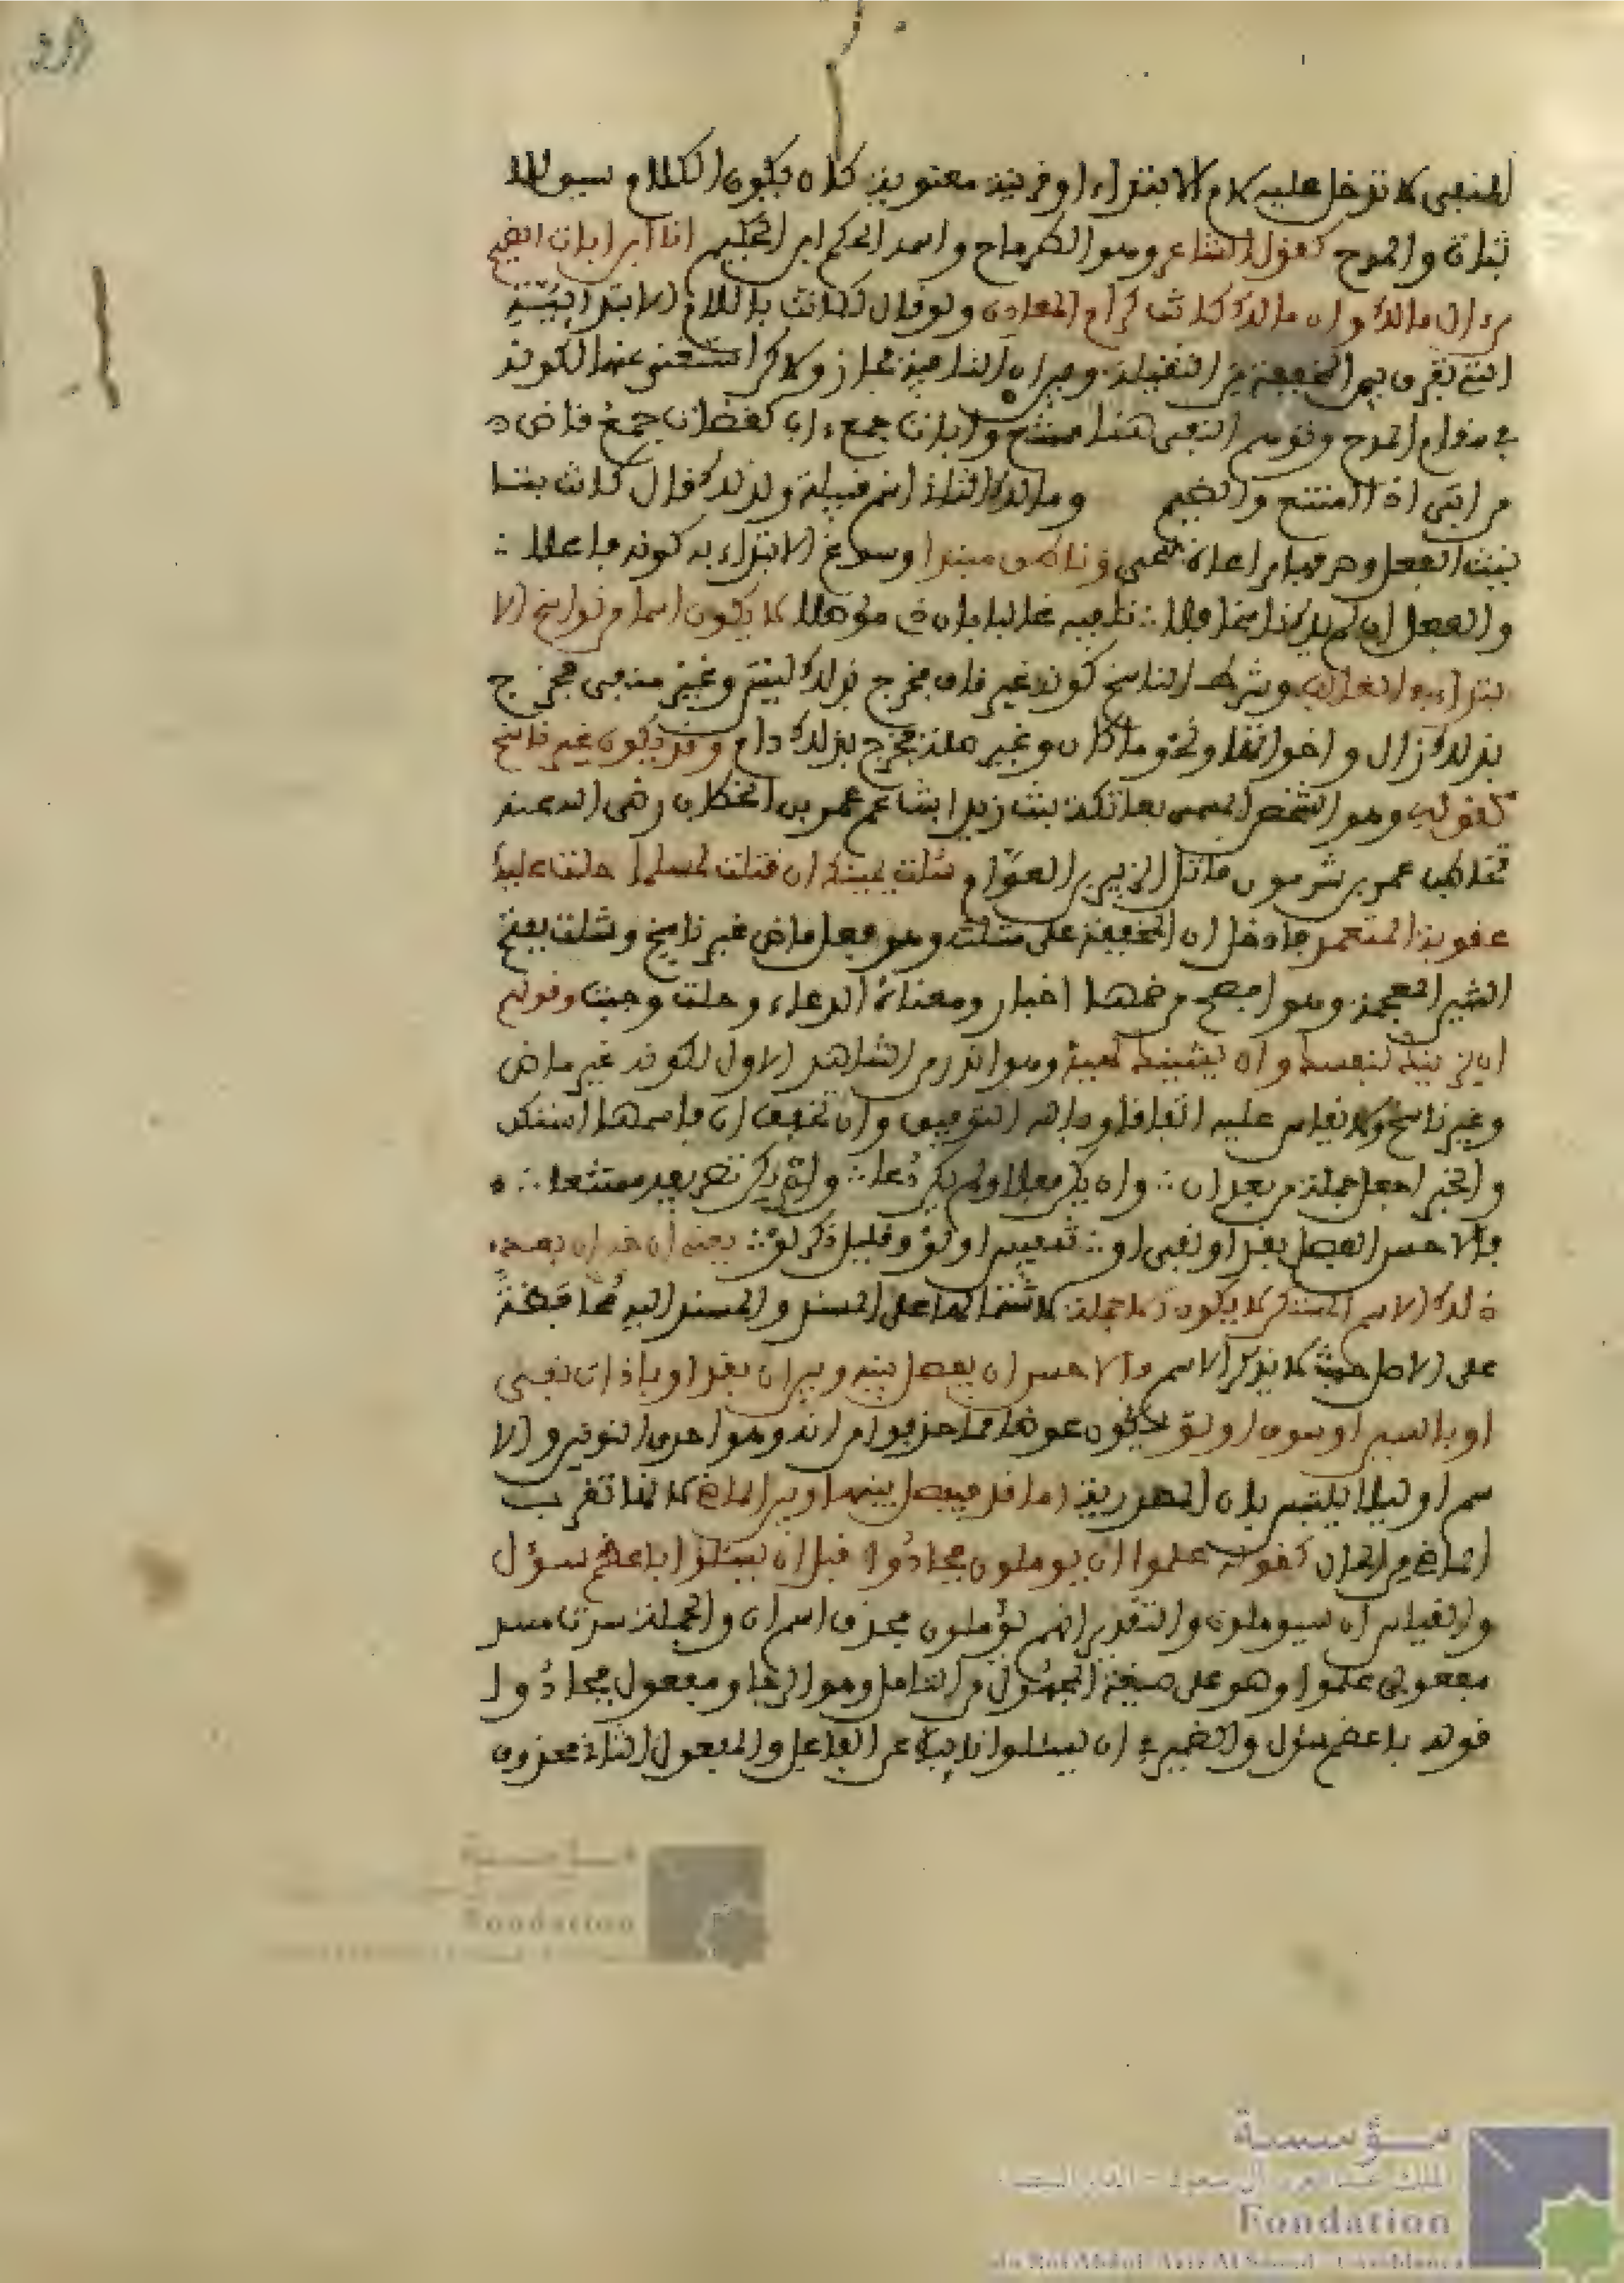 المنفي لا تدخل عليه لام الابتداء او قرينة معنوية كان يكون الكلام سيق للا
ثبات والمدح كقول الشاعر وهو الطرماح واسمه الحكم ابن الحكيم انا ابن ابات الضيم
من ال مالك وان مالك كانت كرام المعادن ولو قال لكانت باللام الابتدائية
التي تفرق بين المخففة من الثقيلة وبين ان النافية لجاز ولاكن استغنى عنها لكونه
في مقام المدح وتوهم النفي هنا ممتنع وابات جمع ءاب كقضات جمع قاض
من ابى اذا امتنع والضيم ومالك الثاني اسم قبيلة ولذلك قال كانت بتا
نيث الفعل وصرفها مراعاة للحي
والفعل ان لم يك ناسخا فلا ∴ تلفيه غالبا بان ذي موصلا لا يكون اسما من نواسخ الا
بتداء في الغالب وشرط الناسخ كونه غير ناف مخرج بذلك ليس وغير منفي مخرج
بذلك زال واخواتها ونحو ما كان وغير صلة مخرج بذلك دام وقد يكون غير ناسخ
كقوله وهو الشخص المسمى بعاتكة بنت زيد ابنة عم عمر بن الخطاب رضي الله عنه
تخاطب عمرو بن جرموز قاتل الزبير بن العوام شلت يمينك ان قتلت لمسلما حلت عليك
عقوبة المتعمد فادخل ان المخففة على قتلت وهو فعل ماض غير ناسخ وشلت بفتح
الشين المعجمة وهو افصح من ضمها اخبار ومعناه الدعاء وحلت وجبت وقولهم
ان يزينك لنفسك وان يشينك لهيه وهو اندر من الشاهد الاول لكونه غير ماض
وغير ناسخ ولا يقاس عليه اتفاقا وبالله التوفيق وان تخفف ان فاسمها استكن
والخبر اجعل جملة من بعد ان ∴ وان يكن فعلا ولم يكن دعا ∴ ولم يكن تصريفه ممتنعا ∴
فالاحسن الفصل بقد او نفي او ∴ تنفيس او لو وقليل ذكر لو ∴ يعني ان خبر ان بعد
ذلك الاسم المستكن لا يكون الا جملة لاشتمالها على المسند والمسند اليه محافظة
على الاصل حيث لا يذكر الاسم والاحسن ان يفصل بينه وبين ان بقد او باداة نفي
او بالسين او سوف او لو ليكون عوضا مما حذفوا من انه وهو احدى النونين والا
سم او ليلا يلتبس بان المصدرية اما قد فيفصل بينها وبين الماضي لانها تقرب
الماضي من الحال كقوله علموا ان يوملون فجادوا قبل ان يسئلوا باعظم سؤل
والقياس ان سيوملون والتقدير انهم يؤملون فحذف اسم ان والجملة سدت مسد
مفعولي علموا وهو على صيغة المجهول من التامل وهو الرجا ومفعول فجادوا
قوله باعظم سؤل والضمير في ان يسئلوا نايبا عن الفاعل والمفعول الثاني محذوف
مؤسسة
Fondation